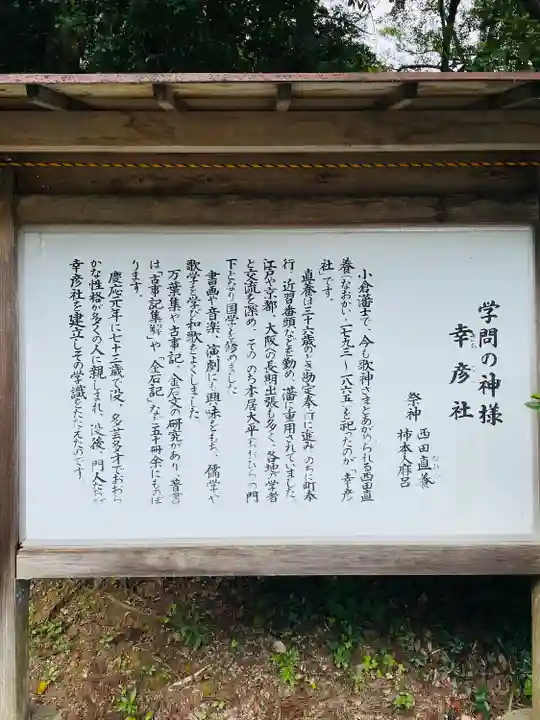 学問の神様
幸彦社
祭神 西田直養
柿本人麻呂
小倉藩士で、今も歌神さまとあがめられる西田直
養(なおかい・一七九三~一八六五)を祀ったのが「幸彦
社」です。
直養は三十六歳のとき勘定奉行に進み、のちに町奉
行・近習番頭などを勤め、藩に重用されていました。
江戸や京都、大阪への長期出張も多く、各地の学者
と交流を深め、そののち本居大平(もとおりおおひら)の門
下となり国学を修めました。
書画や音楽、演劇にも興味をもち、儒学や
歌学を学び和歌をよくしました。
万葉集や古事記、金石文の研究があり、著書
は「古事記集解」や「金石記」など五十冊余にものぼ
ります。
慶応元年に七十三歳で没。多芸多才でおおら
かな性格が多くの人に親しまれ、没後、門人
幸彦社を建立しその学識をたたえたのです